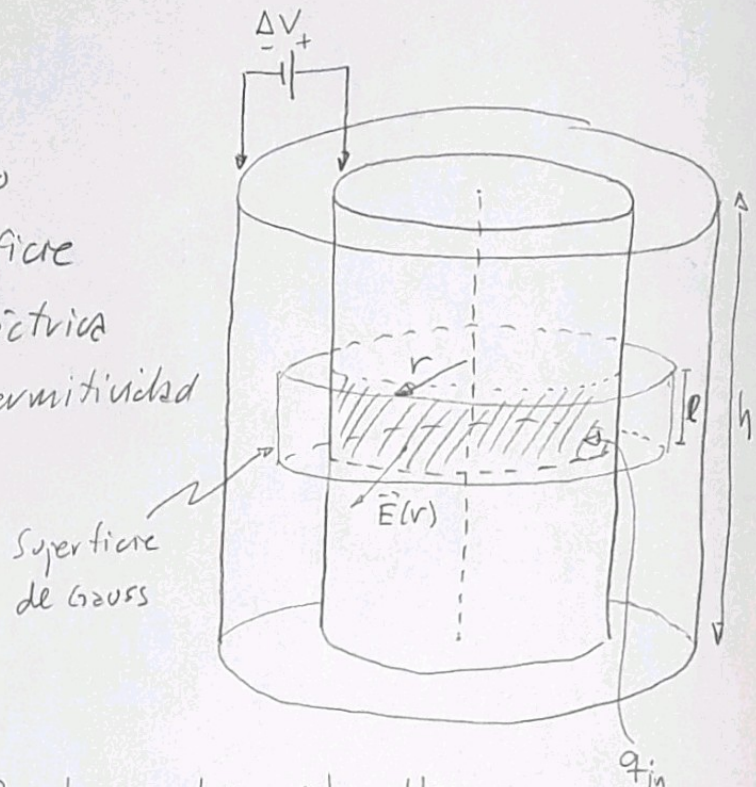 ΔV
- +
ficie
éctrica
ermitividad
r
l
h
E⃗(r)
Superficie
de Gauss
+ + + + +
q_in